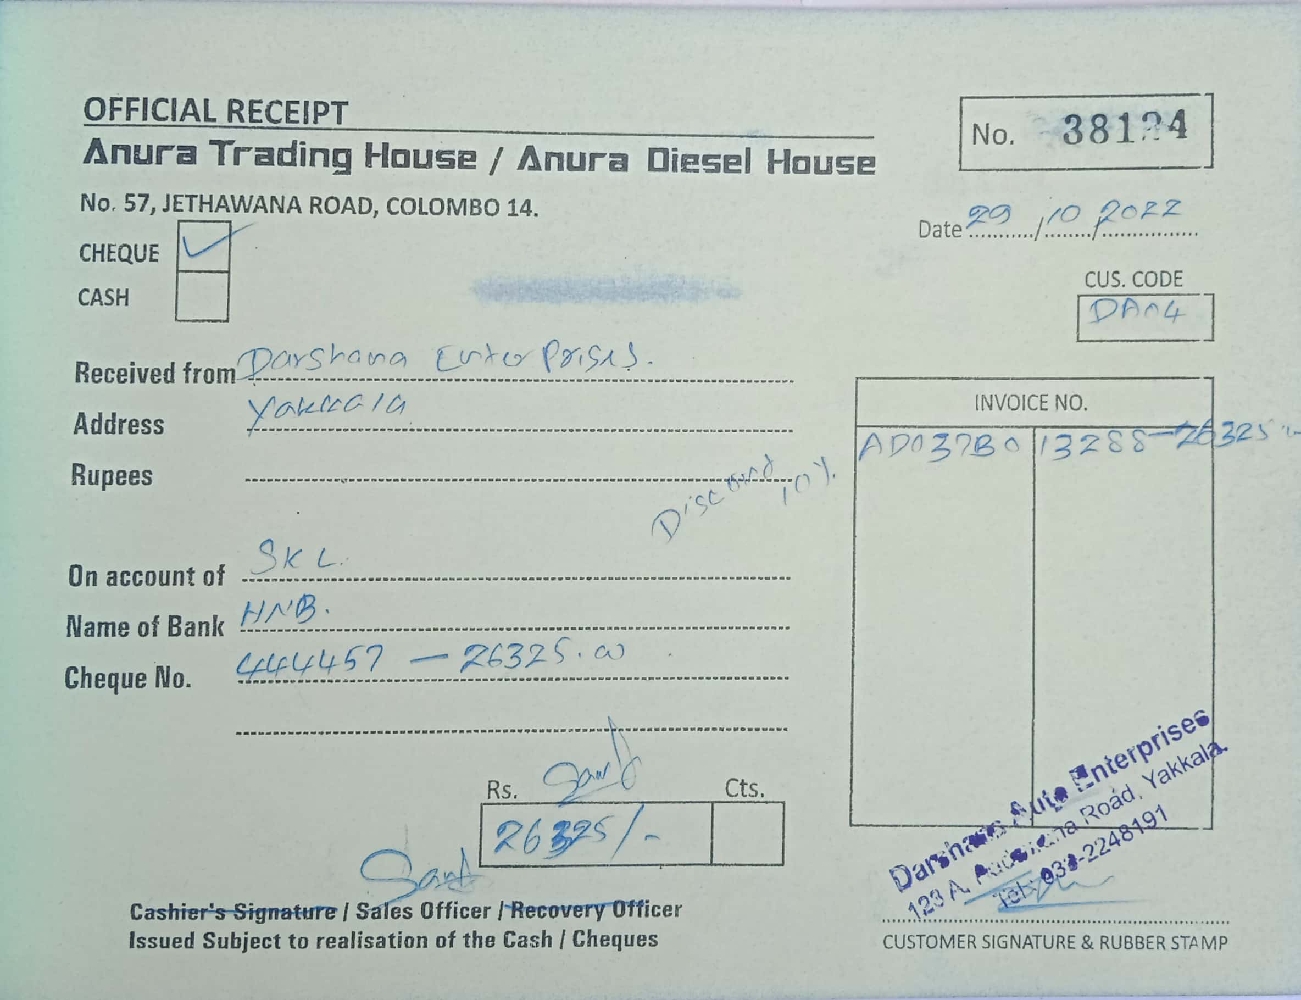 OFFICIAL RECEIPT
Anura Trading House / Anura Diesel House
No. 57, JETHAWANA ROAD, COLOMBO 14.
No. 38124
Date 29/10/2022
CHEQUE ✓
CASH
CUS. CODE
DA04
Received from Darshana Enterprises.
Address Yakkala
Rupees
Discound 10%
INVOICE NO.
AD037B0 13288-26325
On account of SKL
Name of Bank HNB.
Cheque No. 444457 - 26325.00
Rs. Cts.
26325/-
Cashier's Signature / Sales Officer / Recovery Officer
Issued Subject to realisation of the Cash / Cheques
Darshana Auto Enterprises
123 A, Road, Yakkala.
Tel: 033-2248191
CUSTOMER SIGNATURE & RUBBER STAMP